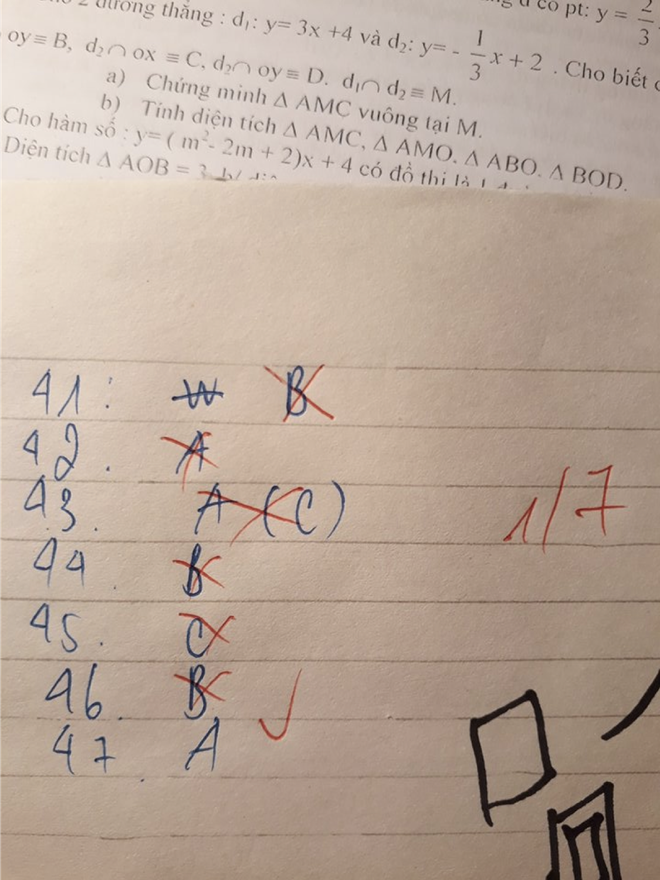 2 đường thẳng : d₁: y= 3x +4 và d₂: y= - 1/3 x + 2 . Cho biết
có pt: y = 2/3
oy ≡ B, d₂∩ ox ≡ C, d₂∩ oy ≡ D. d₁∩ d₂ ≡ M.
a) Chứng minh Δ AMC vuông tại M.
b) Tính diện tích Δ AMC, Δ AMO. Δ ABO. Δ BOD.
Cho hàm số : y= ( m²- 2m + 2)x + 4 có đồ thị là
Diện tích Δ AOB =
41: B
42. A
43. A (C)
44 B
45. C
46. B
47. A
1/7